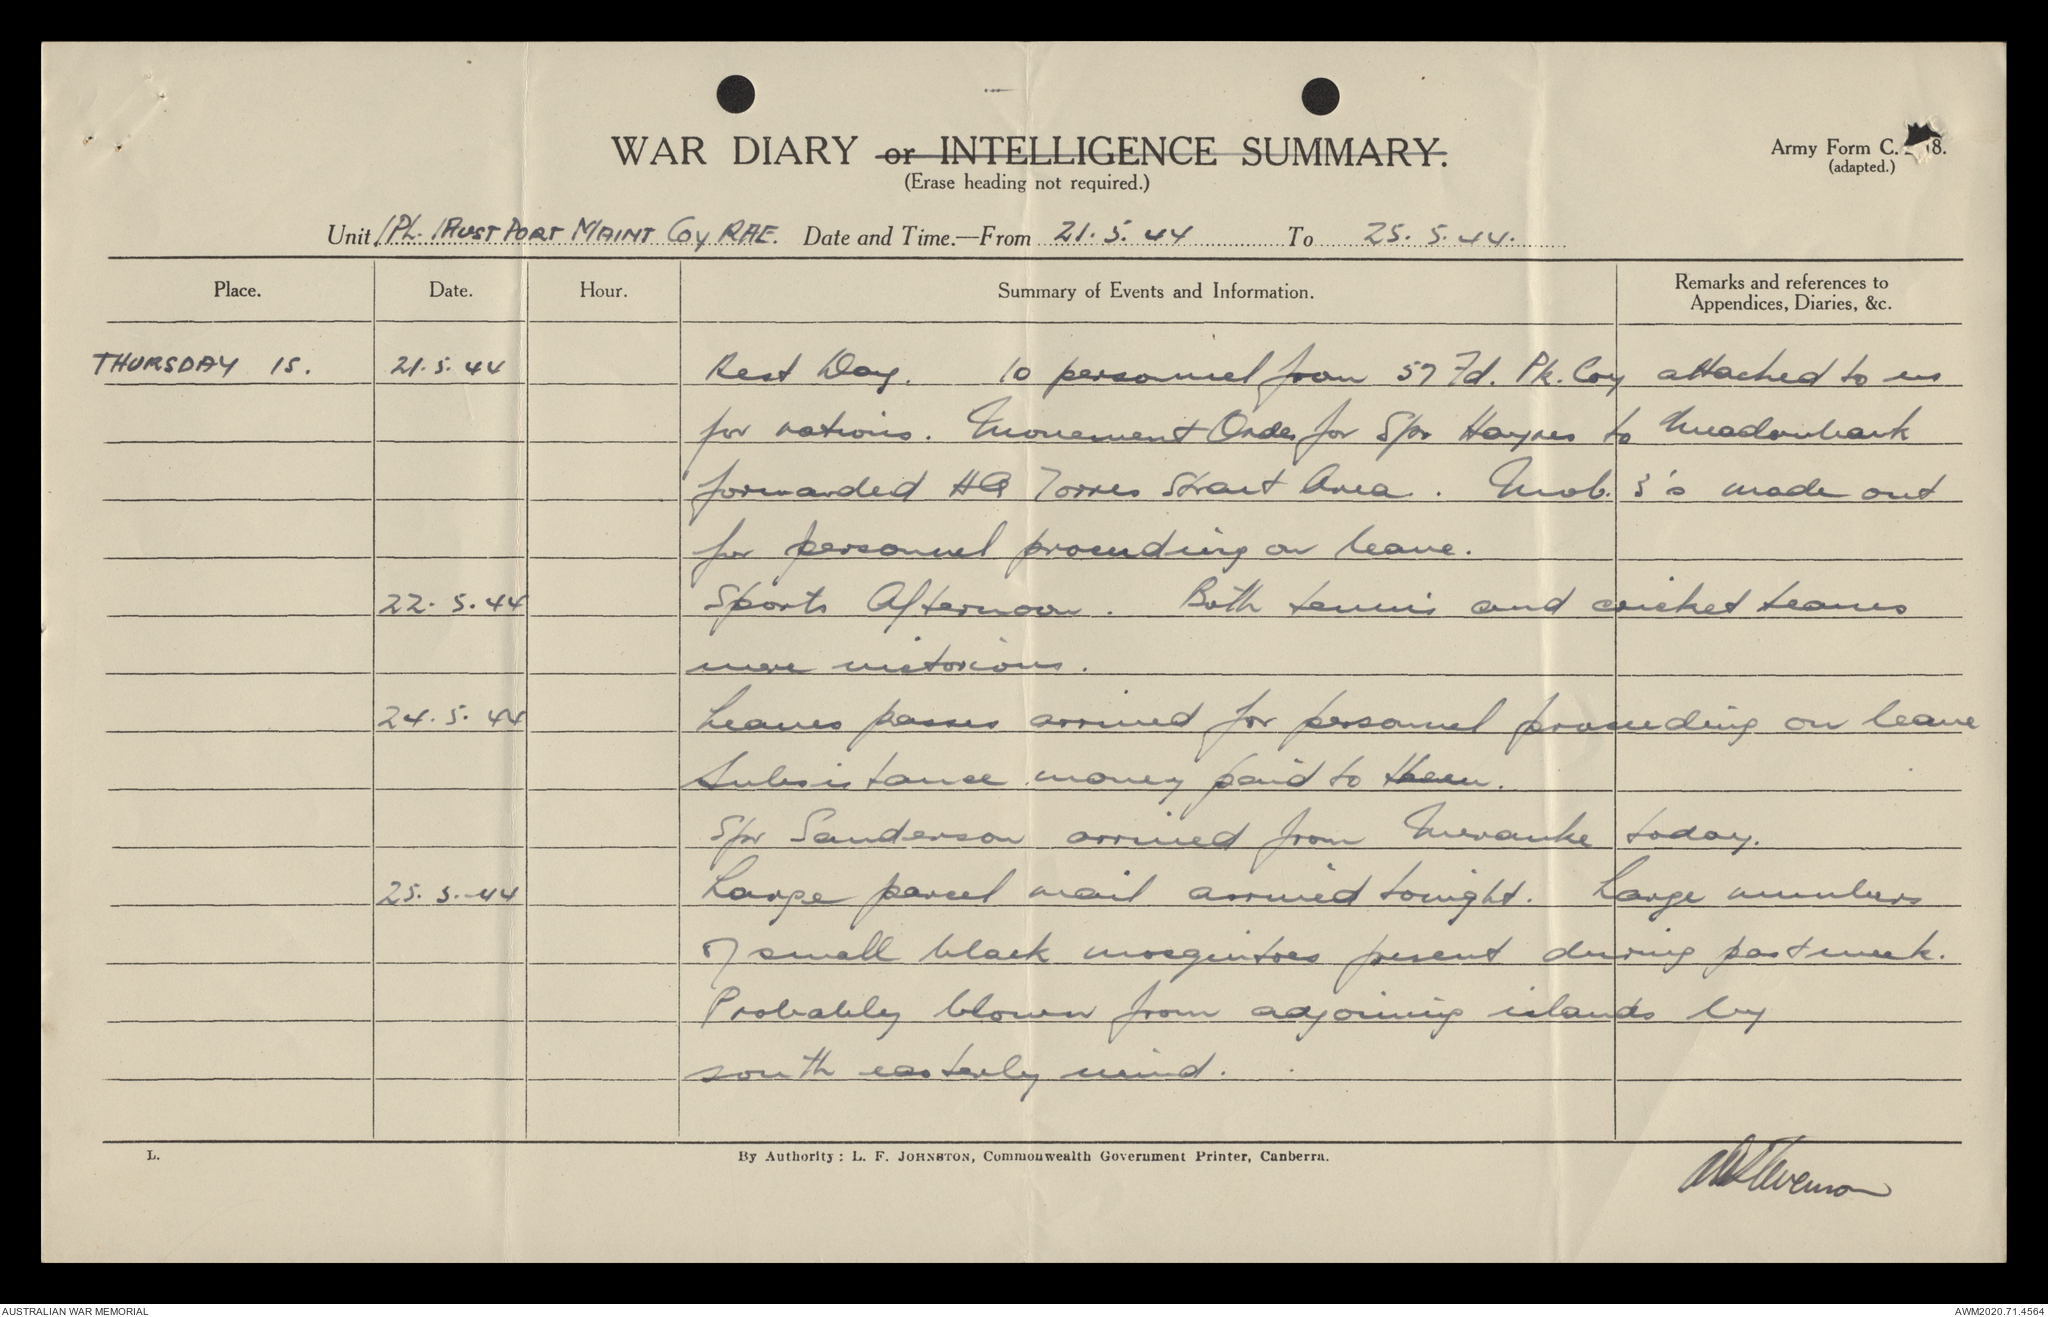 WAR DIARY or INTELLIGENCE SUMMARY.
(Erase heading not required.)
Army Form C. 8.
(adapted.)
Unit 1 Pl. 1 Aust Port Maint Coy RAE. Date and Time.—From 21.5.44 To 25.5.44.
Place. Date. Hour. Summary of Events and Information. Remarks and references to
Appendices, Diaries, &c.
THURSDAY IS. 21.5.44 Rest Day. 10 personnel from 57 Fd. Pk. Coy attached to us
for rations. Movement Order for Spr Haynes to Meadowbank
forwarded HQ Torres Strait Area. Mob. 3's made out
for personnel proceeding on leave.
22.5.44 Sports Afternoon. Both tennis and cricket teams
were victorious.
24.5.44 Leaves passes arrived for personnel proceeding on leave
Subsistance money paid to them.
Spr Sanderson arrived from Merauke today.
25.5.44 Large parcel mail arrived tonight. Large numbers
of small black mosquitoes present during past week.
Probably blown from adjoining islands by
south easterly wind.
L.
By Authority: L. F. JOHNSTON, Commonwealth Government Printer, Canberra.
Stevenson
AUSTRALIAN WAR MEMORIAL
AWM2020.71.4564